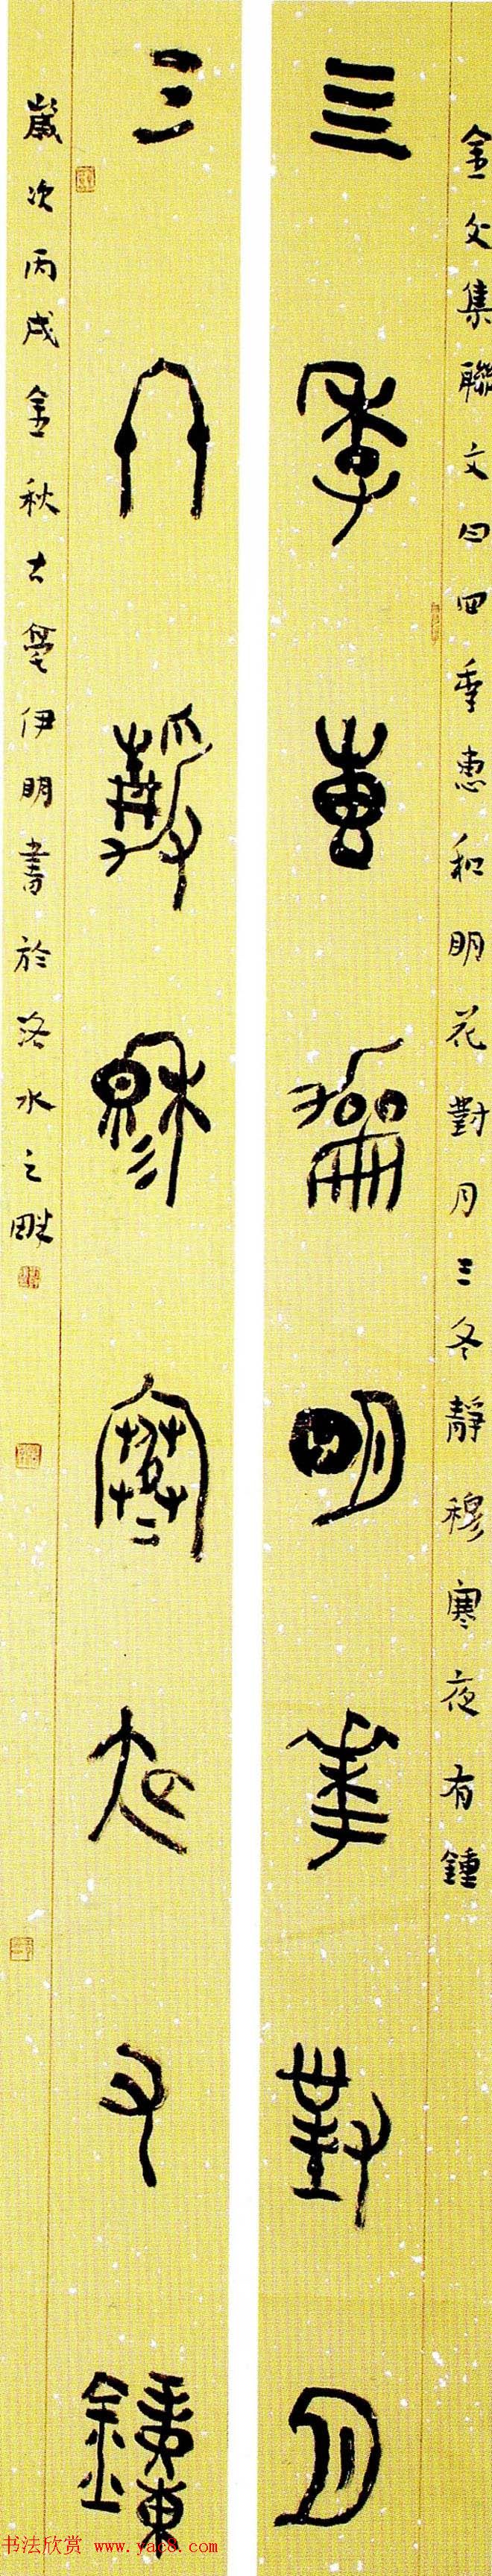 金文集聯文曰四季惠和明花對月三冬靜穆寒夜有鍾
亖季惠龢明華對月
三冬靜穆寒夜又鐘
歲次丙戌金秋古亳伊明書於洛水之畔
书法欣赏 www.yac8.com